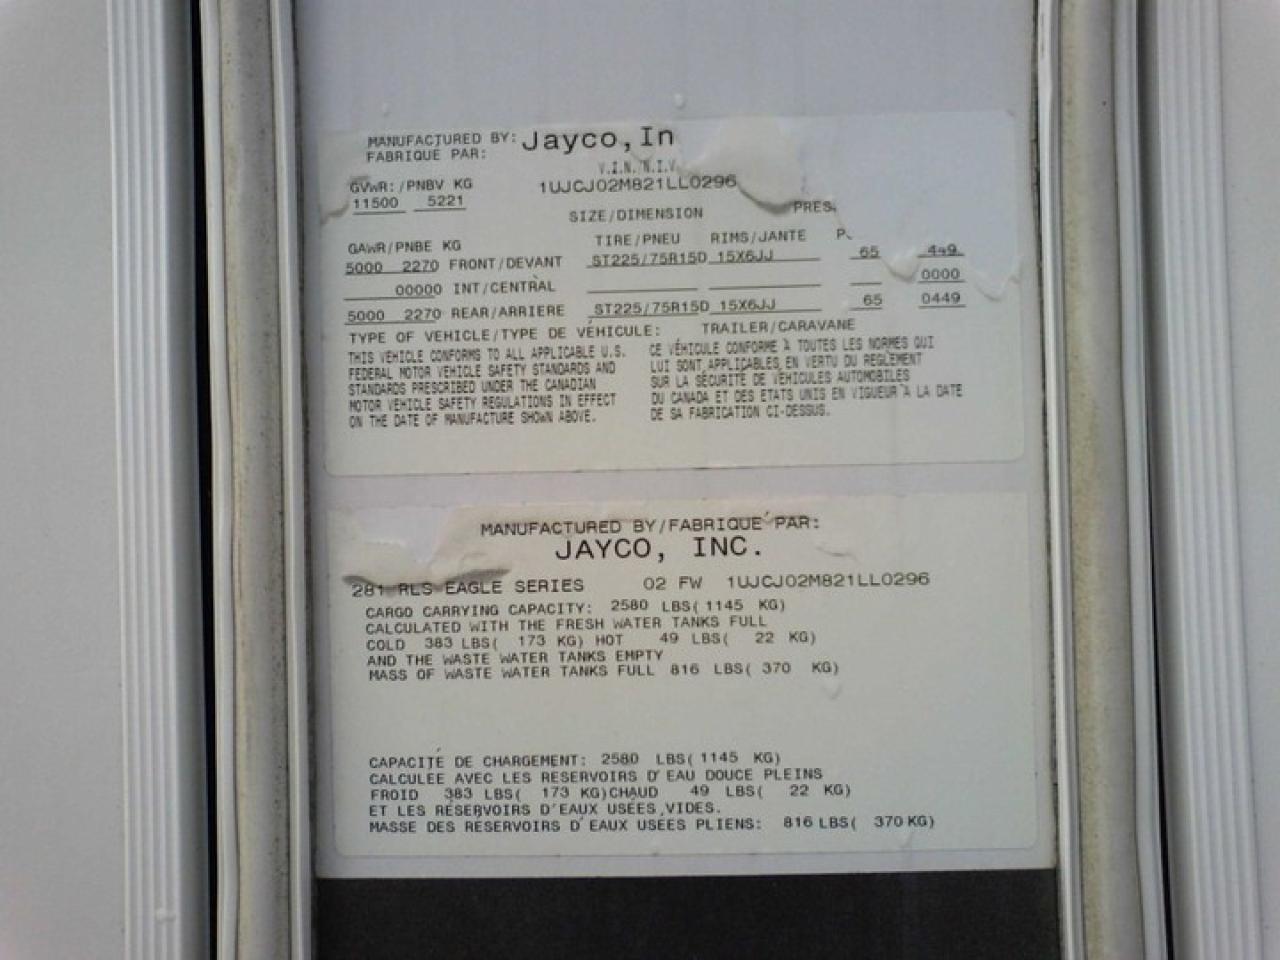 MANUFACTURED BY: Jayco, In
FABRIQUE PAR:
V.I.N./N.I.V.
GVWR:/PNBV KG 1UJCJ02M821LL0296
11500 5221
SIZE/DIMENSION PRES
GAWR/PNBE KG TIRE/PNEU RIMS/JANTE
5000 2270 FRONT/DEVANT ST225/75R15D 15X6JJ 65 449
00000 INT/CENTRAL 0000
5000 2270 REAR/ARRIERE ST225/75R15D 15X6JJ 65 0449
TYPE OF VEHICLE/TYPE DE VÉHICULE: TRAILER/CARAVANE
THIS VEHICLE CONFORMS TO ALL APPLICABLE U.S.
FEDERAL MOTOR VEHICLE SAFETY STANDARDS AND
STANDARDS PRESCRIBED UNDER THE CANADIAN
MOTOR VEHICLE SAFETY REGULATIONS IN EFFECT
ON THE DATE OF MANUFACTURE SHOWN ABOVE.
CE VÉHICULE CONFORME À TOUTES LES NORMES QUI
LUI SONT APPLICABLES EN VERTU DU REGLEMENT
SUR LA SÉCURITÉ DE VEHICULES AUTOMOBILES
DU CANADA ET DES ETATS UNIS EN VIGUEUR À LA DATE
DE SA FABRICATION CI-DESSUS.
MANUFACTURED BY/FABRIQUÉ PAR:
JAYCO, INC.
281 RLS EAGLE SERIES 02 FW 1UJCJ02M821LL0296
CARGO CARRYING CAPACITY: 2580 LBS(1145 KG)
CALCULATED WITH THE FRESH WATER TANKS FULL
COLD 383 LBS( 173 KG) HOT 49 LBS( 22 KG)
AND THE WASTE WATER TANKS EMPTY
MASS OF WASTE WATER TANKS FULL 816 LBS( 370 KG)
CAPACITÉ DE CHARGEMENT: 2580 LBS(1145 KG)
CALCULEE AVEC LES RESERVOIRS D'EAU DOUCE PLEINS
FROID 383 LBS( 173 KG)CHAUD 49 LBS( 22 KG)
ET LES RÉSERVOIRS D'EAUX USÉES,VIDES.
MASSE DES RESERVOIRS D'EAUX USEES PLIENS: 816 LBS( 370 KG)